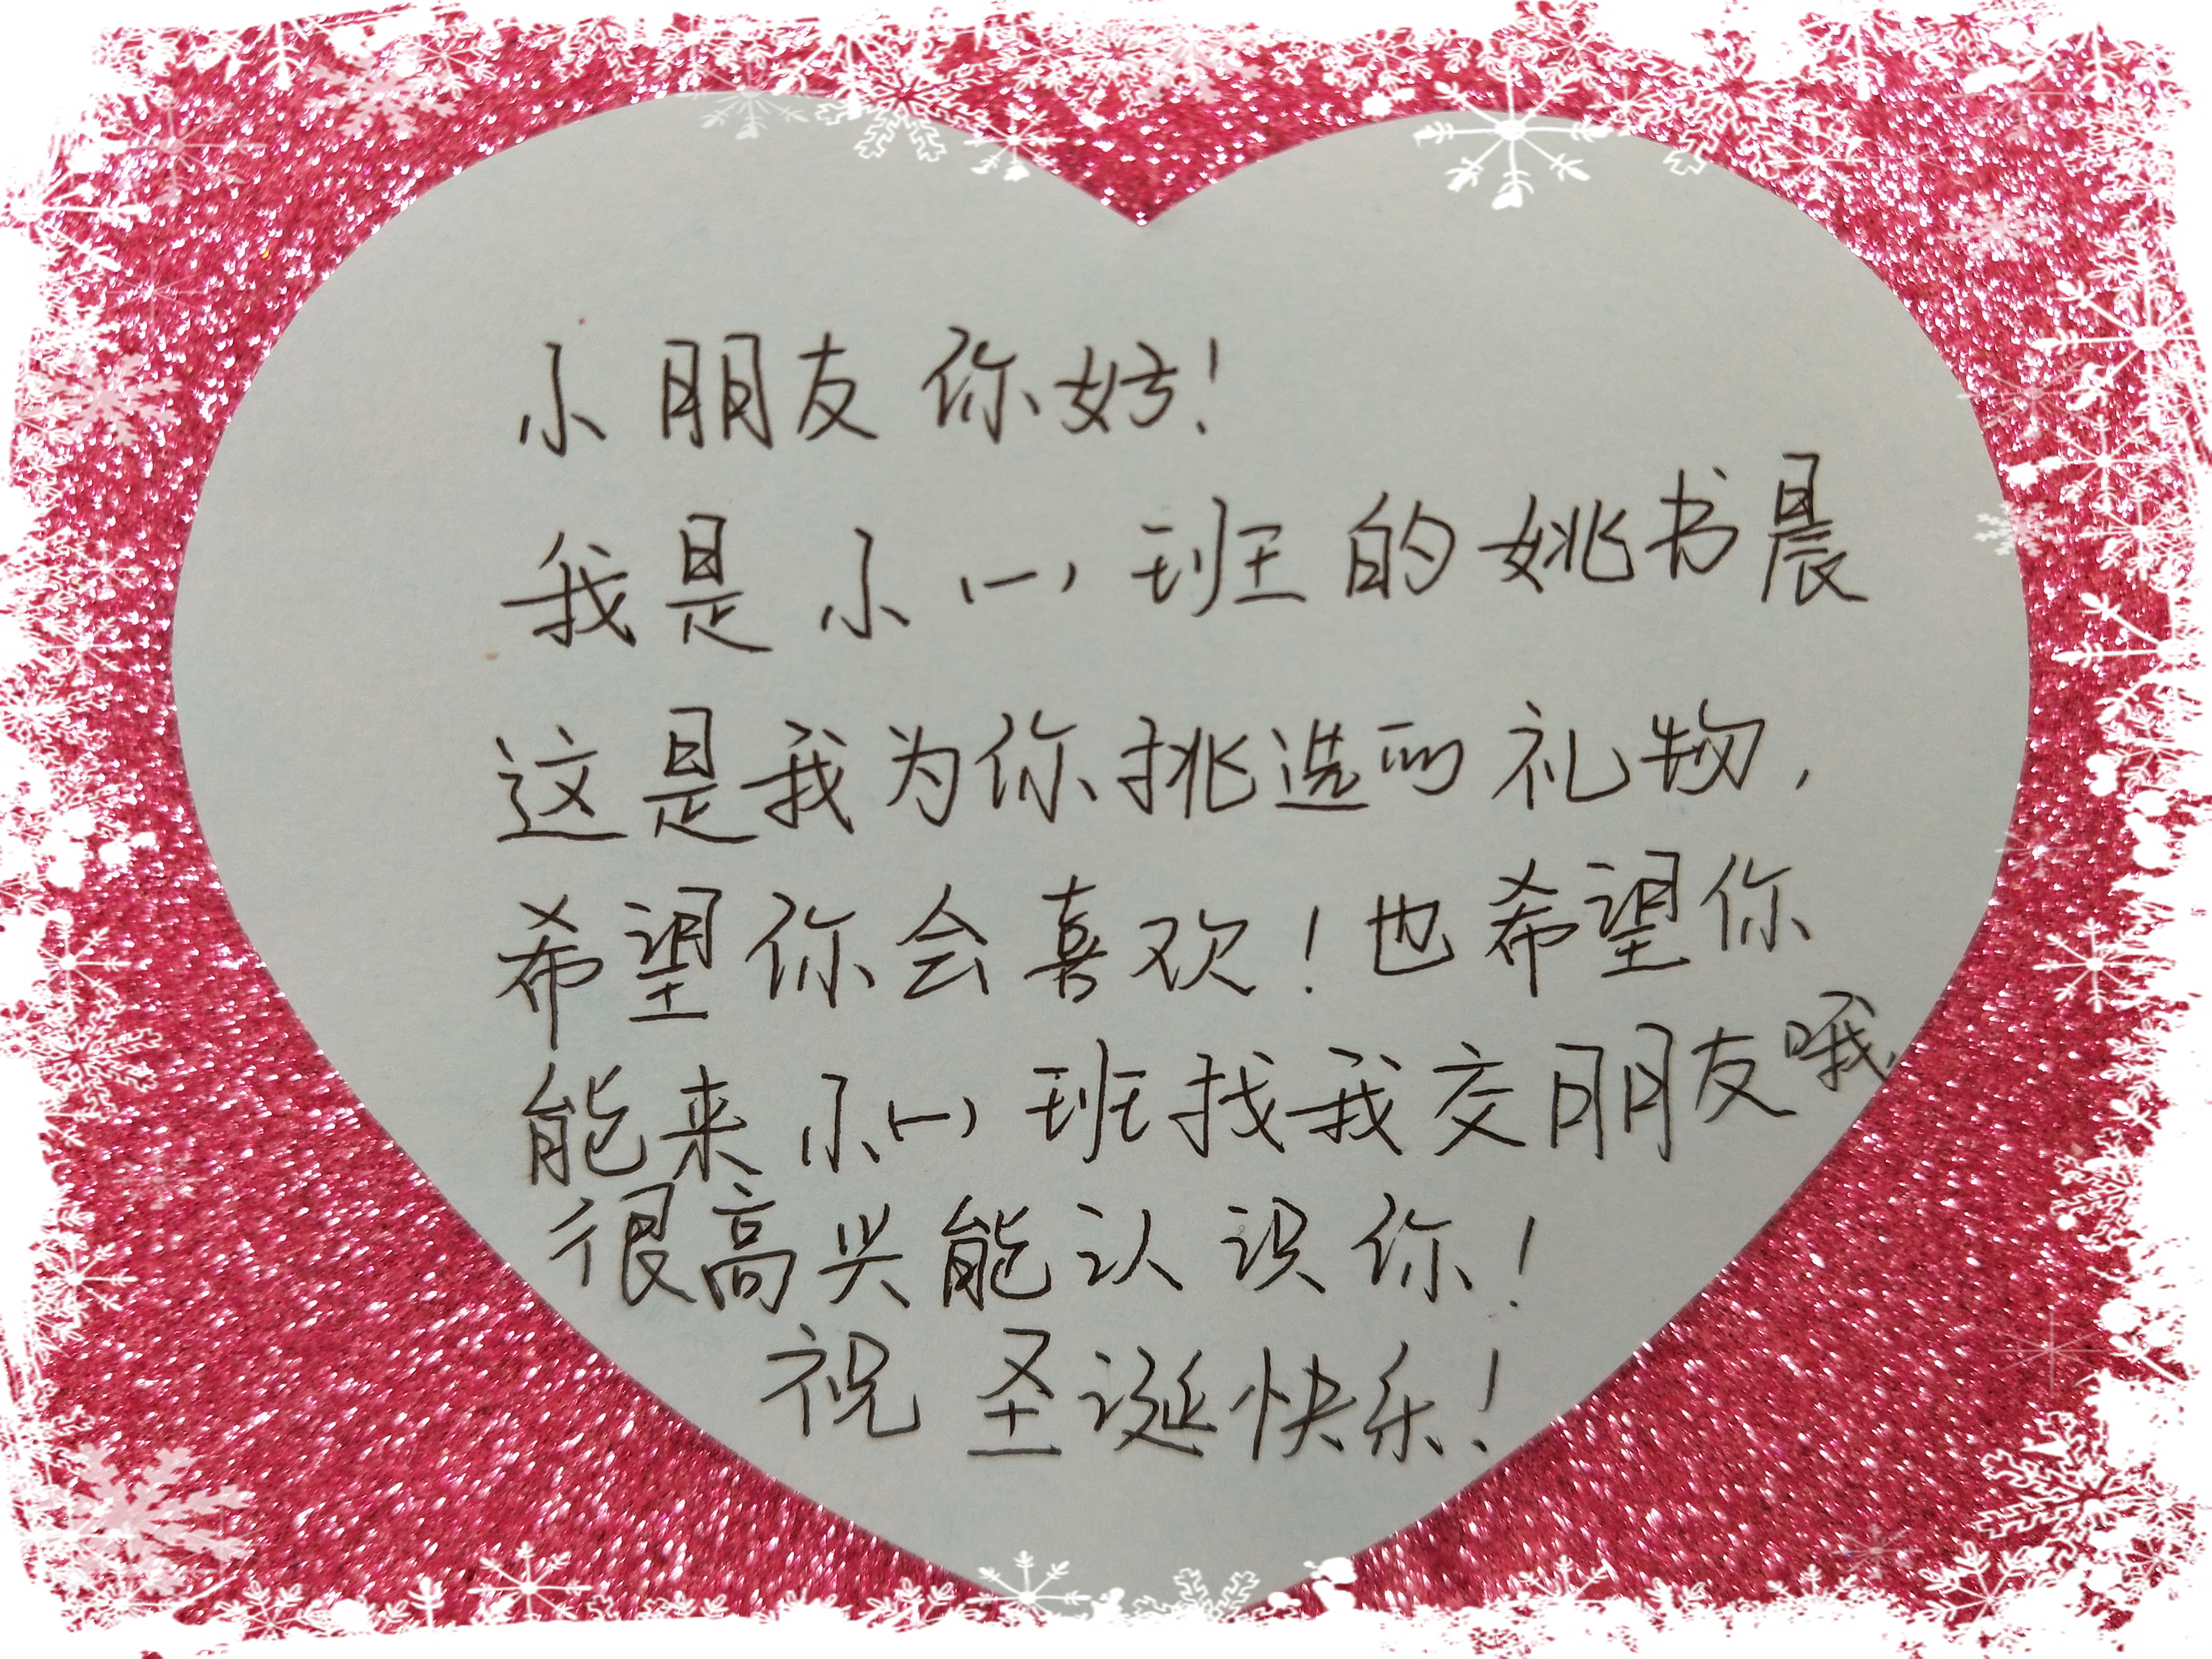 小朋友你好!
我是小(一)班的姚书晨
这是我为你挑选的礼物,
希望你会喜欢!也希望你
能来小(一)班找我交朋友哦,
很高兴能认识你!
祝圣诞快乐!